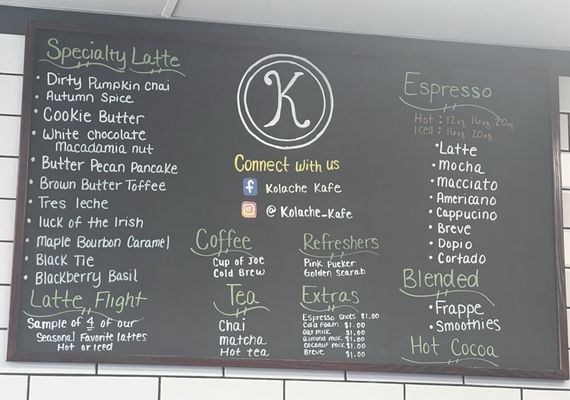 Specialty Latte
• Dirty Pumpkin chai
• Autumn Spice
• Cookie Butter
• White chocolate
Macadamia nut
• Butter Pecan Pancake
• Brown Butter Toffee
• Tres leche
• luck of the Irish
• Maple Bourbon Caramel
• Black Tie
• Blackberry Basil
Latte Flight
Sample of 4 of our
Seasonal Favorite lattes
Hot or Iced
K
Connect with us
f Kolache Kafe
@ Kolache_Kafe
Coffee
Cup of Joe
Cold Brew
Tea
Chai
matcha
Hot tea
Refreshers
Pink Pucker
Golden Scarab
Extras
Espresso shots $1.00
Cold Foam $1.00
Oat milk $1.00
Almond milk $1.00
Coconut milk $1.00
Breve $1.00
Espresso
Hot : 12oz. 16oz. 20oz
Iced : 16oz. 20oz.
• Latte
• mocha
• Macciato
• Americano
• Cappucino
• Breve
• Dopio
• Cortado
Blended
• Frappe
• Smoothies
Hot Cocoa